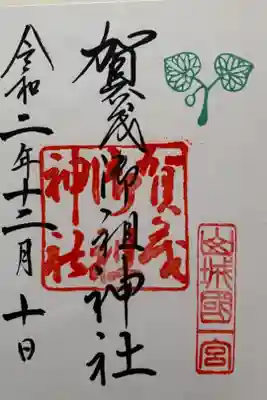 山城國一宮
賀茂御祖神社
賀茂御祖神社
令和二年十二月十日